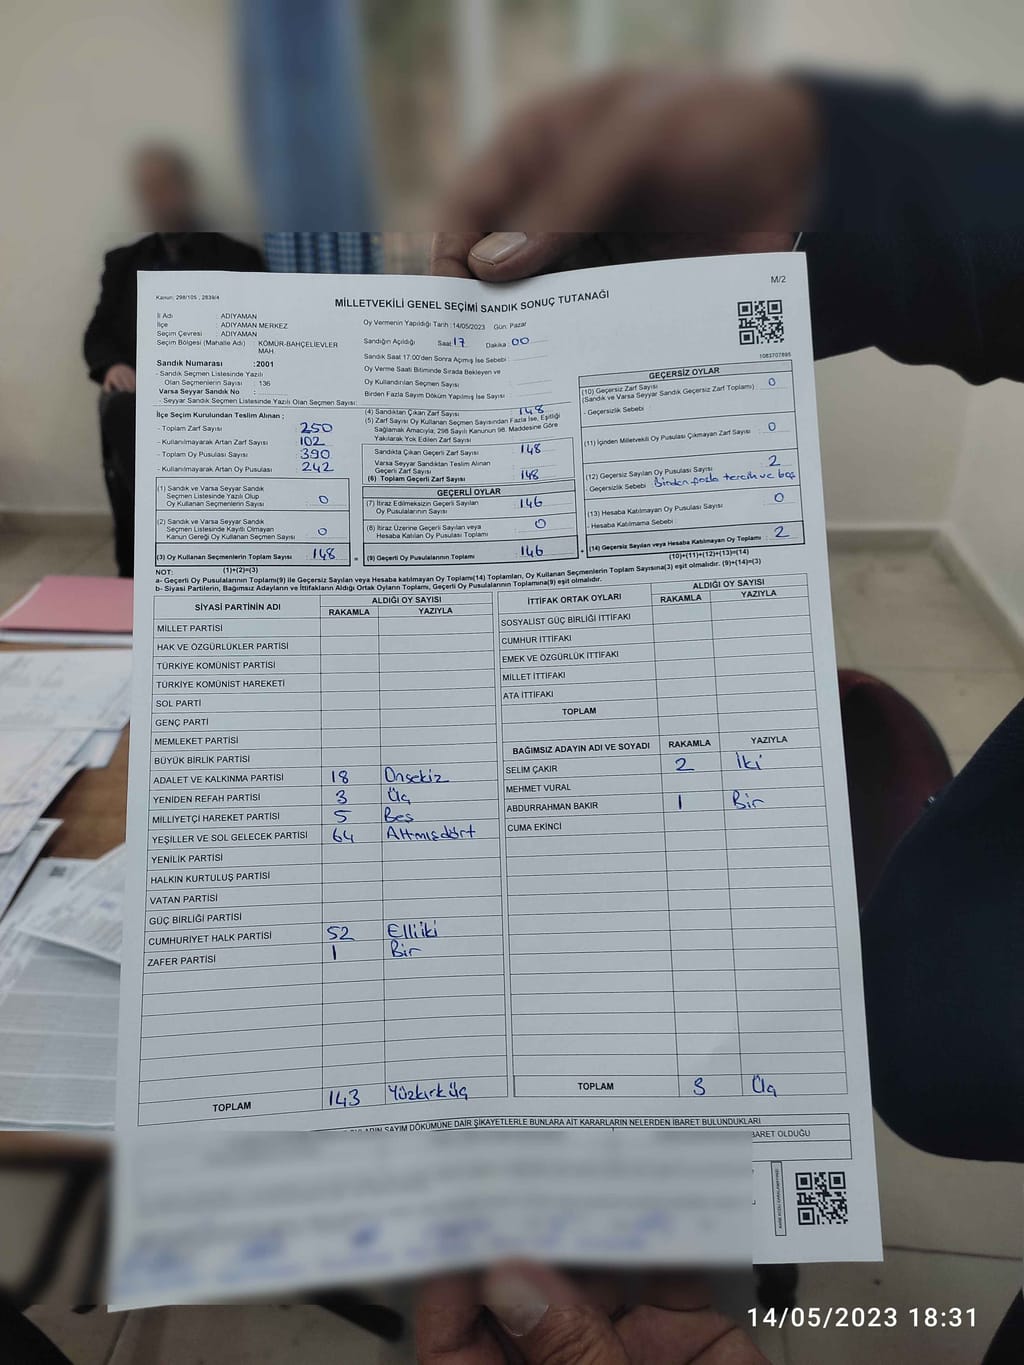 M/2
Kanun: 298/105 , 2839/4
MİLLETVEKİLİ GENEL SEÇİMİ SANDIK SONUÇ TUTANAĞI
İl Adı : ADIYAMAN
İlçe : ADIYAMAN MERKEZ
Seçim Çevresi : ADIYAMAN
Seçim Bölgesi (Mahalle Adı) : KÖMÜR-BAHÇELİEVLER
MAH.
Sandık Numarası : 2001
- Sandık Seçmen Listesinde Yazılı
Olan Seçmenlerin Sayısı : 136
Varsa Seyyar Sandık No :
- Seyyar Sandık Seçmen Listesinde Yazılı Olan Seçmen Sayısı:
Oy Vermenin Yapıldığı Tarih :14/05/2023 Gün: Pazar
Sandığın Açıldığı Saat 17 Dakika 00
Sandık Saat 17:00'den Sonra Açılmış İse Sebebi
Oy Verme Saati Bitiminde Sırada Bekleyen ve
Oy Kullandırılan Seçmen Sayısı
Birden Fazla Sayım Döküm Yapılmış İse Sayısı
1083707895
İlçe Seçim Kurulundan Teslim Alınan ;
- Toplam Zarf Sayısı : 250
- Kullanılmayarak Artan Zarf Sayısı : 102
- Toplam Oy Pusulası Sayısı : 390
- Kullanılmayarak Artan Oy Pusulası : 242
(1) Sandık ve Varsa Seyyar Sandık
Seçmen Listesinde Yazılı Olup
Oy Kullanan Seçmenlerin Sayısı 0
(2) Sandık ve Varsa Seyyar Sandık
Seçmen Listesinde Kayıtlı Olmayan
Kanun Gereği Oy Kullanan Seçmen Sayısı 0
(3) Oy Kullanan Seçmenlerin Toplam Sayısı 148
(1)+(2)=(3)
(4) Sandıktan Çıkan Zarf Sayısı 148
(5) Zarf Sayısı Oy Kullanan Seçmen Sayısından Fazla İse, Eşitliği
Sağlamak Amacıyla; 298 Sayılı Kanunun 98. Maddesine Göre
Yakılarak Yok Edilen Zarf Sayısı
Sandıkta Çıkan Geçerli Zarf Sayısı 148
Varsa Seyyar Sandıktan Teslim Alınan
Geçerli Zarf Sayısı
(6) Toplam Geçerli Zarf Sayısı 148
GEÇERLİ OYLAR
(7) İtiraz Edilmeksizin Geçerli Sayılan
Oy Pusulalarının Sayısı 146
(8) İtiraz Üzerine Geçerli Sayılan veya
Hesaba Katılan Oy Pusulası Toplamı 0
= (9) Geçerli Oy Pusulalarının Toplamı 146
GEÇERSİZ OYLAR
(10) Geçersiz Zarf Sayısı 0
(Sandık ve Varsa Seyyar Sandık Geçersiz Zarf Toplamı)
- Geçersizlik Sebebi :
(11) İçinden Milletvekili Oy Pusulası Çıkmayan Zarf Sayısı 0
(12) Geçersiz Sayılan Oy Pusulası Sayısı 2
- Geçersizlik Sebebi Birden fazla tercih ve boş
(13) Hesaba Katılmayan Oy Pusulası Sayısı 0
- Hesaba Katılmama Sebebi
+ (14) Geçersiz Sayılan veya Hesaba Katılmayan Oy Toplamı 2
(10)+(11)+(12)+(13)=(14)
NOT:
a- Geçerli Oy Pusulaları Toplamı(9) ile Geçersiz Sayılan veya Hesaba katılmayan Oy Toplamı(14) Toplamları, Oy Kullanan Seçmenlerin Toplam Sayısına(3) eşit olmalıdır. (9)+(14)=(3)
b- Siyasi Partilerin, Bağımsız Adayların ve İttifakların Aldığı Ortak Oyların Toplamı, Geçerli Oy Pusulalarının Toplamına(9) eşit olmalıdır.
SİYASİ PARTİNİN ADI ALDIĞI OY SAYISI
RAKAMLA YAZIYLA
MİLLET PARTİSİ
HAK VE ÖZGÜRLÜKLER PARTİSİ
TÜRKİYE KOMÜNİST PARTİSİ
TÜRKİYE KOMÜNİST HAREKETİ
SOL PARTİ
GENÇ PARTİ
MEMLEKET PARTİSİ
BÜYÜK BİRLİK PARTİSİ
ADALET VE KALKINMA PARTİSİ 18 Onsekiz
YENİDEN REFAH PARTİSİ 3 Üç
MİLLİYETÇİ HAREKET PARTİSİ 5 Beş
YEŞİLLER VE SOL GELECEK PARTİSİ 64 Altmışdört
YENİLİK PARTİSİ
HALKIN KURTULUŞ PARTİSİ
VATAN PARTİSİ
GÜÇ BİRLİĞİ PARTİSİ
CUMHURİYET HALK PARTİSİ 52 Elliiki
ZAFER PARTİSİ 1 Bir
TOPLAM 143 Yüzkırküç
İTTİFAK ORTAK OYLARI ALDIĞI OY SAYISI
RAKAMLA YAZIYLA
SOSYALİST GÜÇ BİRLİĞİ İTTİFAKI
CUMHUR İTTİFAKI
EMEK VE ÖZGÜRLÜK İTTİFAKI
MİLLET İTTİFAKI
ATA İTTİFAKI
TOPLAM
BAĞIMSIZ ADAYIN ADI VE SOYADI RAKAMLA YAZIYLA
SELİM ÇAKIR 2 İki
MEHMET VURAL
ABDURRAHMAN BAKIR 1 Bir
CUMA EKİNCİ
TOPLAM 3 Üç
SAYIM DÖKÜMÜNE DAİR ŞİKAYETLERLE BUNLARA AİT KARARLARIN NELERDEN İBARET BULUNDUKLARI
BARET OLDUĞU
14/05/2023 18:31